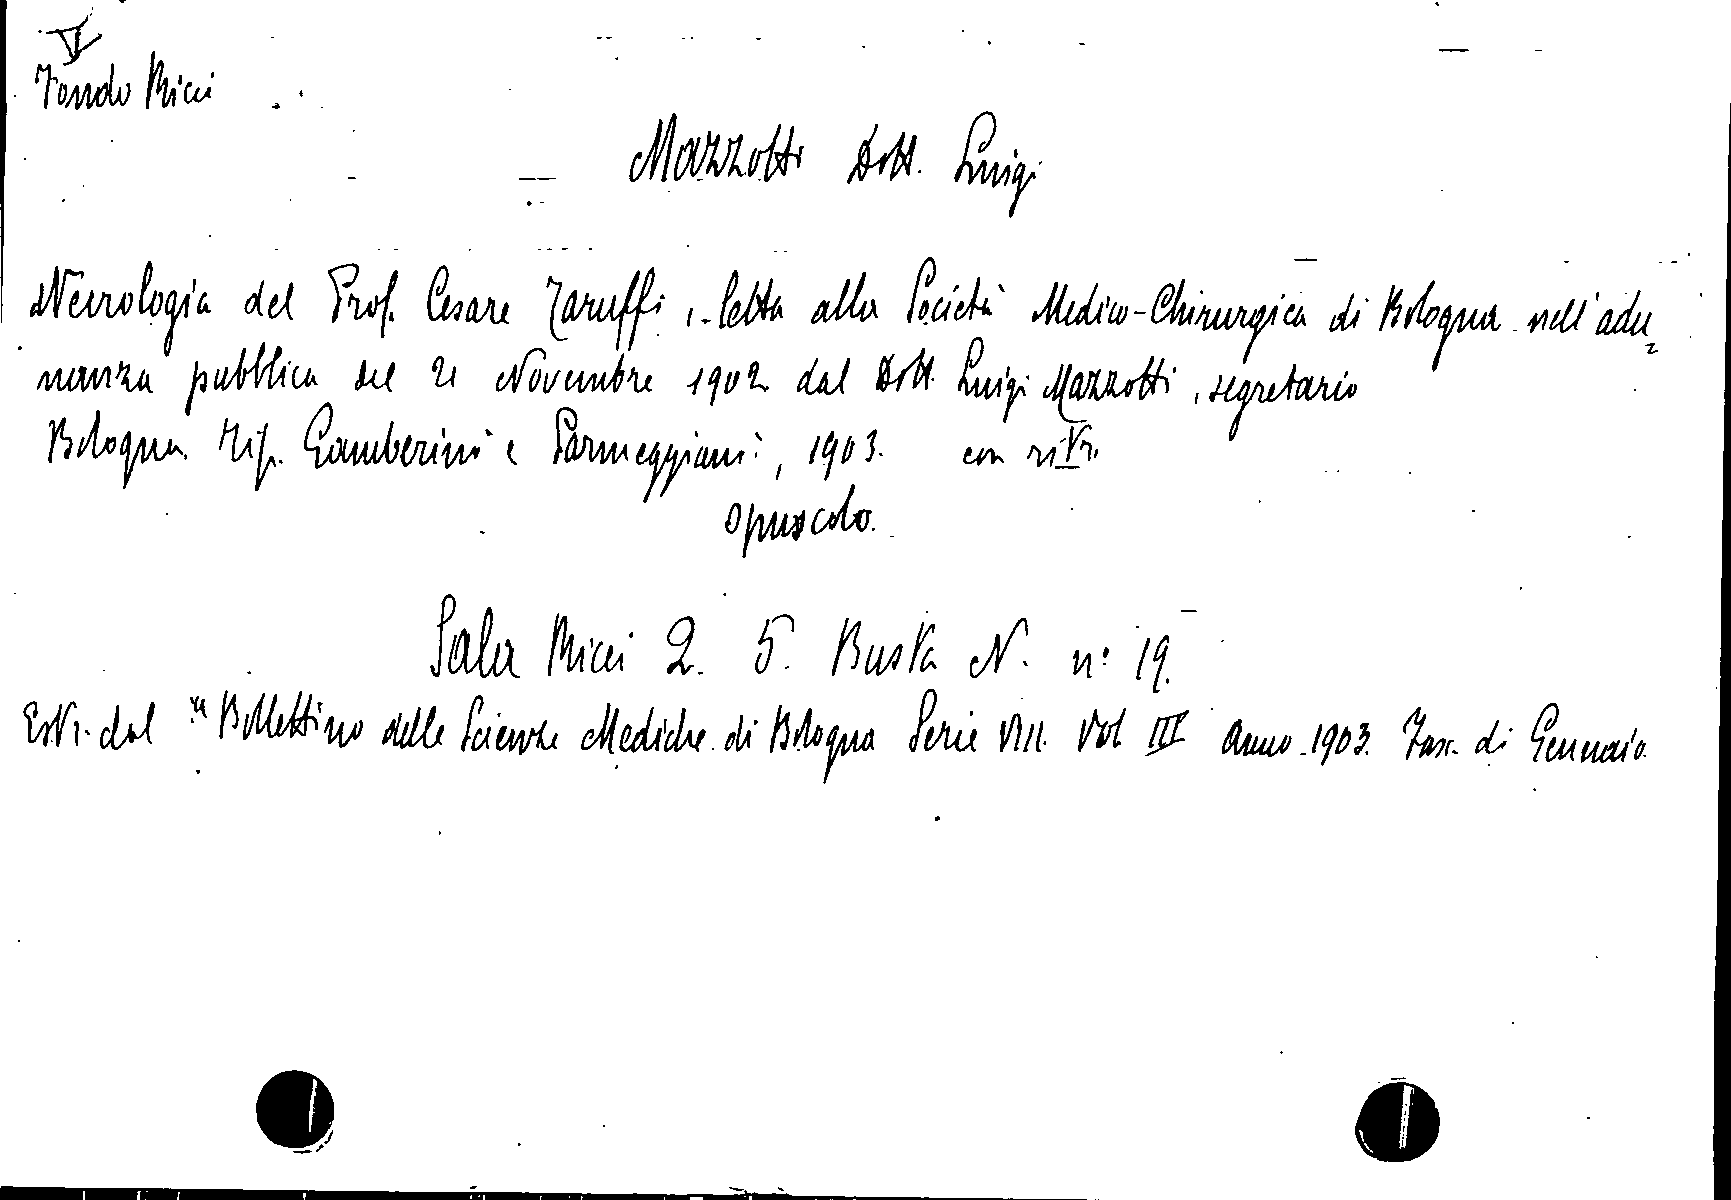 V
Fondo Ricci
Mazzotti Dott. Luigi
Necrologia del Prof. Cesare Taruffi, letta alla Società Medico-Chirurgica di Bologna nell'adu=
nanza pubblica del 21 Novembre 1902 dal Dott. Luigi Mazzotti, segretario
Bologna. Tip. Gamberini e Parmeggiani, 1903. con ritr.
opuscolo.
Sala Ricci 2. 5. Busta N. n: 19.
Estr. dal " Bollettino delle Scienze Mediche di Bologna Serie VIII. Vol III Anno 1903. Fasc. di Gennaio